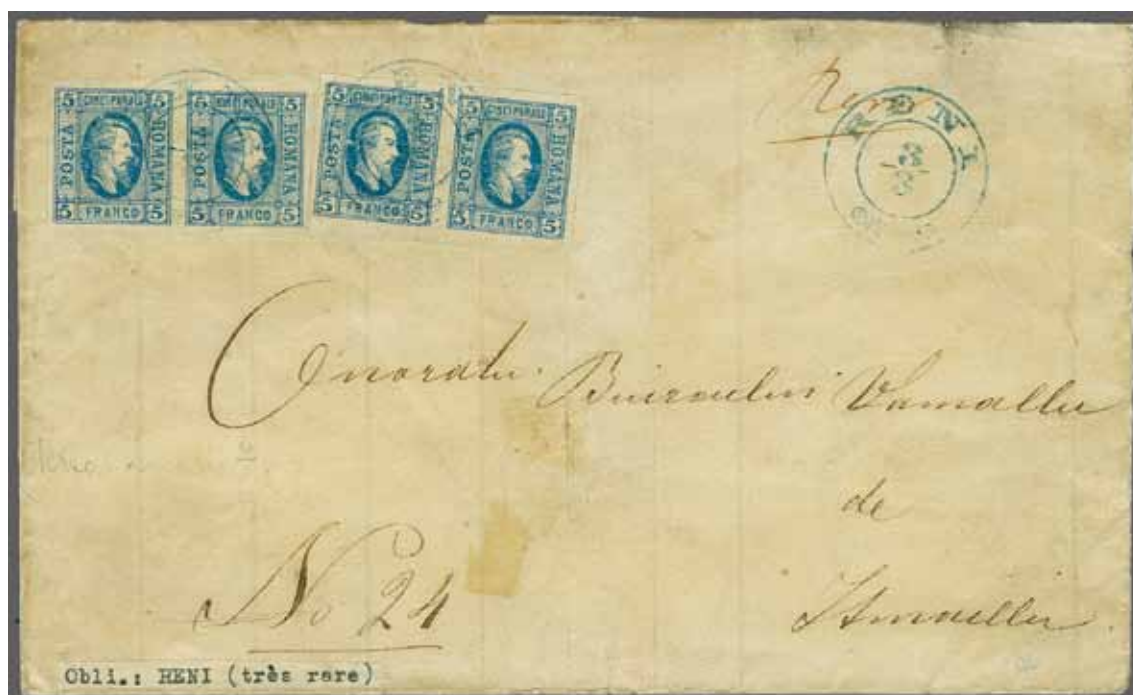 5 CINCI PARALE 5
POSTA ROMANA
5 FRANCO 5
5 CINCI PARALE 5
POSTA ROMANA
5 FRANCO 5
5 CINCI PARALE 5
POSTA ROMANA
5 FRANCO 5
5 CINCI PARALE 5
POSTA ROMANA
5 FRANCO 5
RENI
3/3
Onoratu Biuroului Vamallu
de
Ismaillu
No 24
Obli.: RENI (très rare)